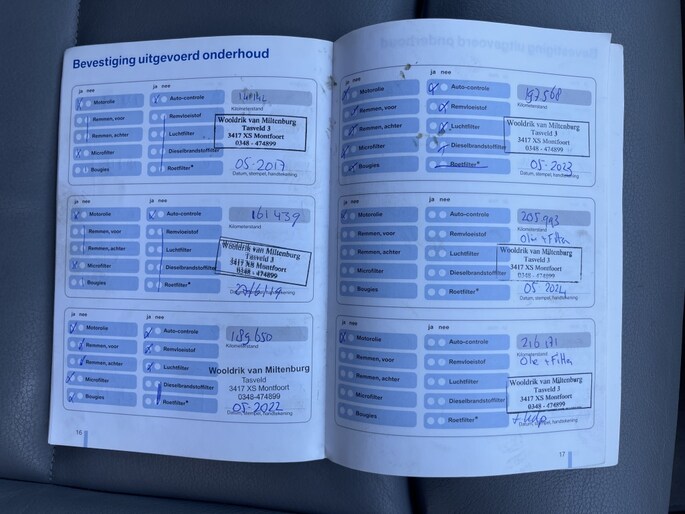 Bevestiging uitgevoerd onderhoud
ja nee ja nee
Motorolie Auto-controle
Kilometerstand
Remmen, voor Remvloeistof
Wooldrik van Miltenburg
Tasveld 3
3417 XS Montfoort
0348 - 474899
Remmen, achter Luchtfilter
Microfilter Dieselbrandstoffilter
05-2017
Bougies Roetfilter*
Datum, stempel, handtekening
ja nee ja nee
Motorolie Auto-controle
161439
Kilometerstand
Remmen, voor Remvloeistof
Wooldrik van Miltenburg
Tasveld 3
3417 XS Montfoort
0348 - 474899
Remmen, achter Luchtfilter
Microfilter Dieselbrandstoffilter
Bougies Roetfilter*
ja nee ja nee
Motorolie Auto-controle
189650
Kilometerstand
Remmen, voor Remvloeistof
Wooldrik van Miltenburg
Tasveld
3417 XS Montfoort
0348-474899
Remmen, achter Luchtfilter
Microfilter Dieselbrandstoffilter
05-2022
Bougies Roetfilter*
Datum, stempel, handtekening
16
ja nee ja nee
Motorolie Auto-controle
197568
Kilometerstand
Remmen, voor Remvloeistof
Wooldrik van Miltenburg
Tasveld 3
3417 XS Montfoort
0348 - 474899
Remmen, achter Luchtfilter
Microfilter Dieselbrandstoffilter
05-2023
Bougies Roetfilter*
Datum, stempel, handtekening
ja nee ja nee
Motorolie Auto-controle
205.993
Kilometerstand
Remmen, voor Remvloeistof
Olie + Filter
Wooldrik van Miltenburg
Tasveld 3
3417 XS Montfoort
0348 - 474899
Remmen, achter Luchtfilter
Microfilter Dieselbrandstoffilter
05 2024
Bougies Roetfilter*
Datum, stempel, handtekening
ja nee ja nee
Motorolie Auto-controle
216171
Kilometerstand
Remmen, voor Remvloeistof
Olie + Filter
Wooldrik van Miltenburg
Tasveld 3
3417 XS Montfoort
0348 - 474899
Remmen, achter Luchtfilter
Microfilter Dieselbrandstoffilter
Bougies Roetfilter*
Datum, stempel, handtekening
17